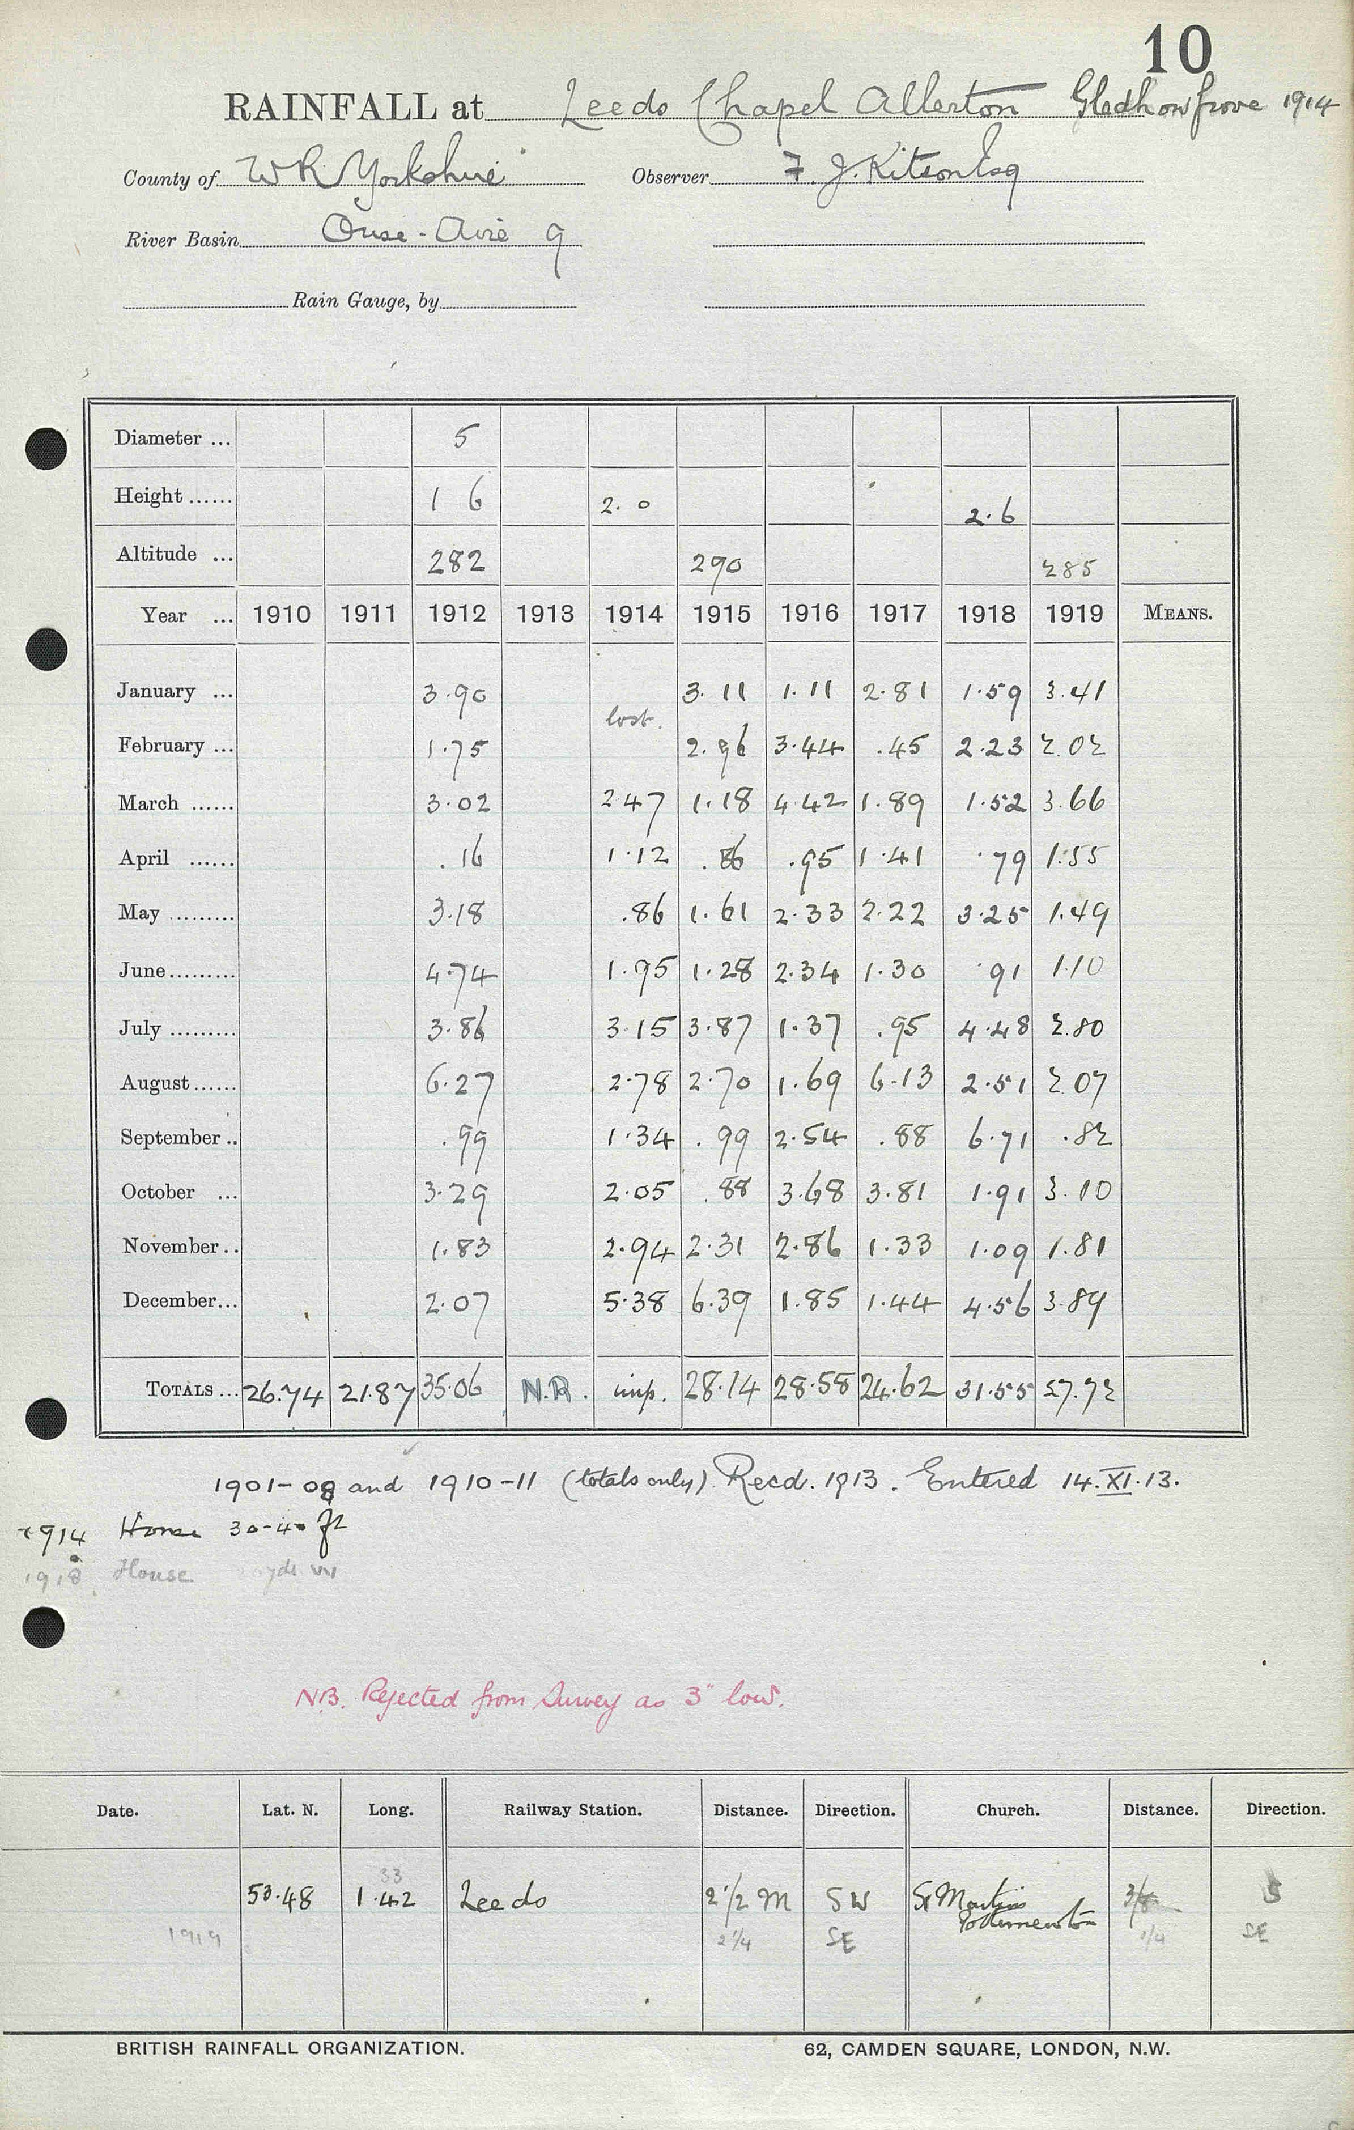 10
RAINFALL at Leeds Chapel Allerton Gledhow Grove 1914
County of W R Yorkshire Observer F. J. Kitson Esq
River Basin Ouse - Aire 9
Rain Gauge, by
Diameter ... 5
Height ...... 1 6 2. 0 2.6
Altitude ... 282 290 285
Year ... 1910 1911 1912 1913 1914 1915 1916 1917 1918 1919 MEANS.
January ... 3.90 3.11 1.11 2.81 1.59 3.41
lost.
February ... 1.75 2.96 3.44 .45 2.23 2.02
March ...... 3.02 2.47 1.18 4.42 1.89 1.52 3.66
April ...... .16 1.12 .86 .95 1.41 .79 1.55
May ......... 3.18 .86 1.61 2.33 2.22 3.25 1.49
June ......... 4.74 1.95 1.28 2.34 1.30 .91 1.10
July ......... 3.86 3.15 3.87 1.37 .95 4.48 2.80
August ...... 6.27 2.78 2.70 1.69 6.13 2.51 2.07
September .. .99 1.34 .99 2.54 .88 6.71 .82
October ... 3.29 2.05 .88 3.68 3.81 1.91 3.10
November .. 1.83 2.94 2.31 2.86 1.33 1.09 1.81
December ... 2.07 5.38 6.39 1.85 1.44 4.56 3.89
TOTALS ... 26.74 21.87 35.06 N.R. imp. 28.14 28.58 24.62 31.55 27.72
1901-08 and 1910-11 (totals only) Recd. 1913. Entered 14.XI.13.
1914 House 30-40 ft
1918. House yds W
NB. Rejected from Survey as 3" low.
Date. Lat. N. Long. Railway Station. Distance. Direction. Church. Distance. Direction.
33
53.48 1.42 Leeds 2 1/2 M SW St Martins 3/8 S
Potternewton
1919 2 1/4 SE 1/4 SE
BRITISH RAINFALL ORGANIZATION. 62, CAMDEN SQUARE, LONDON, N.W.